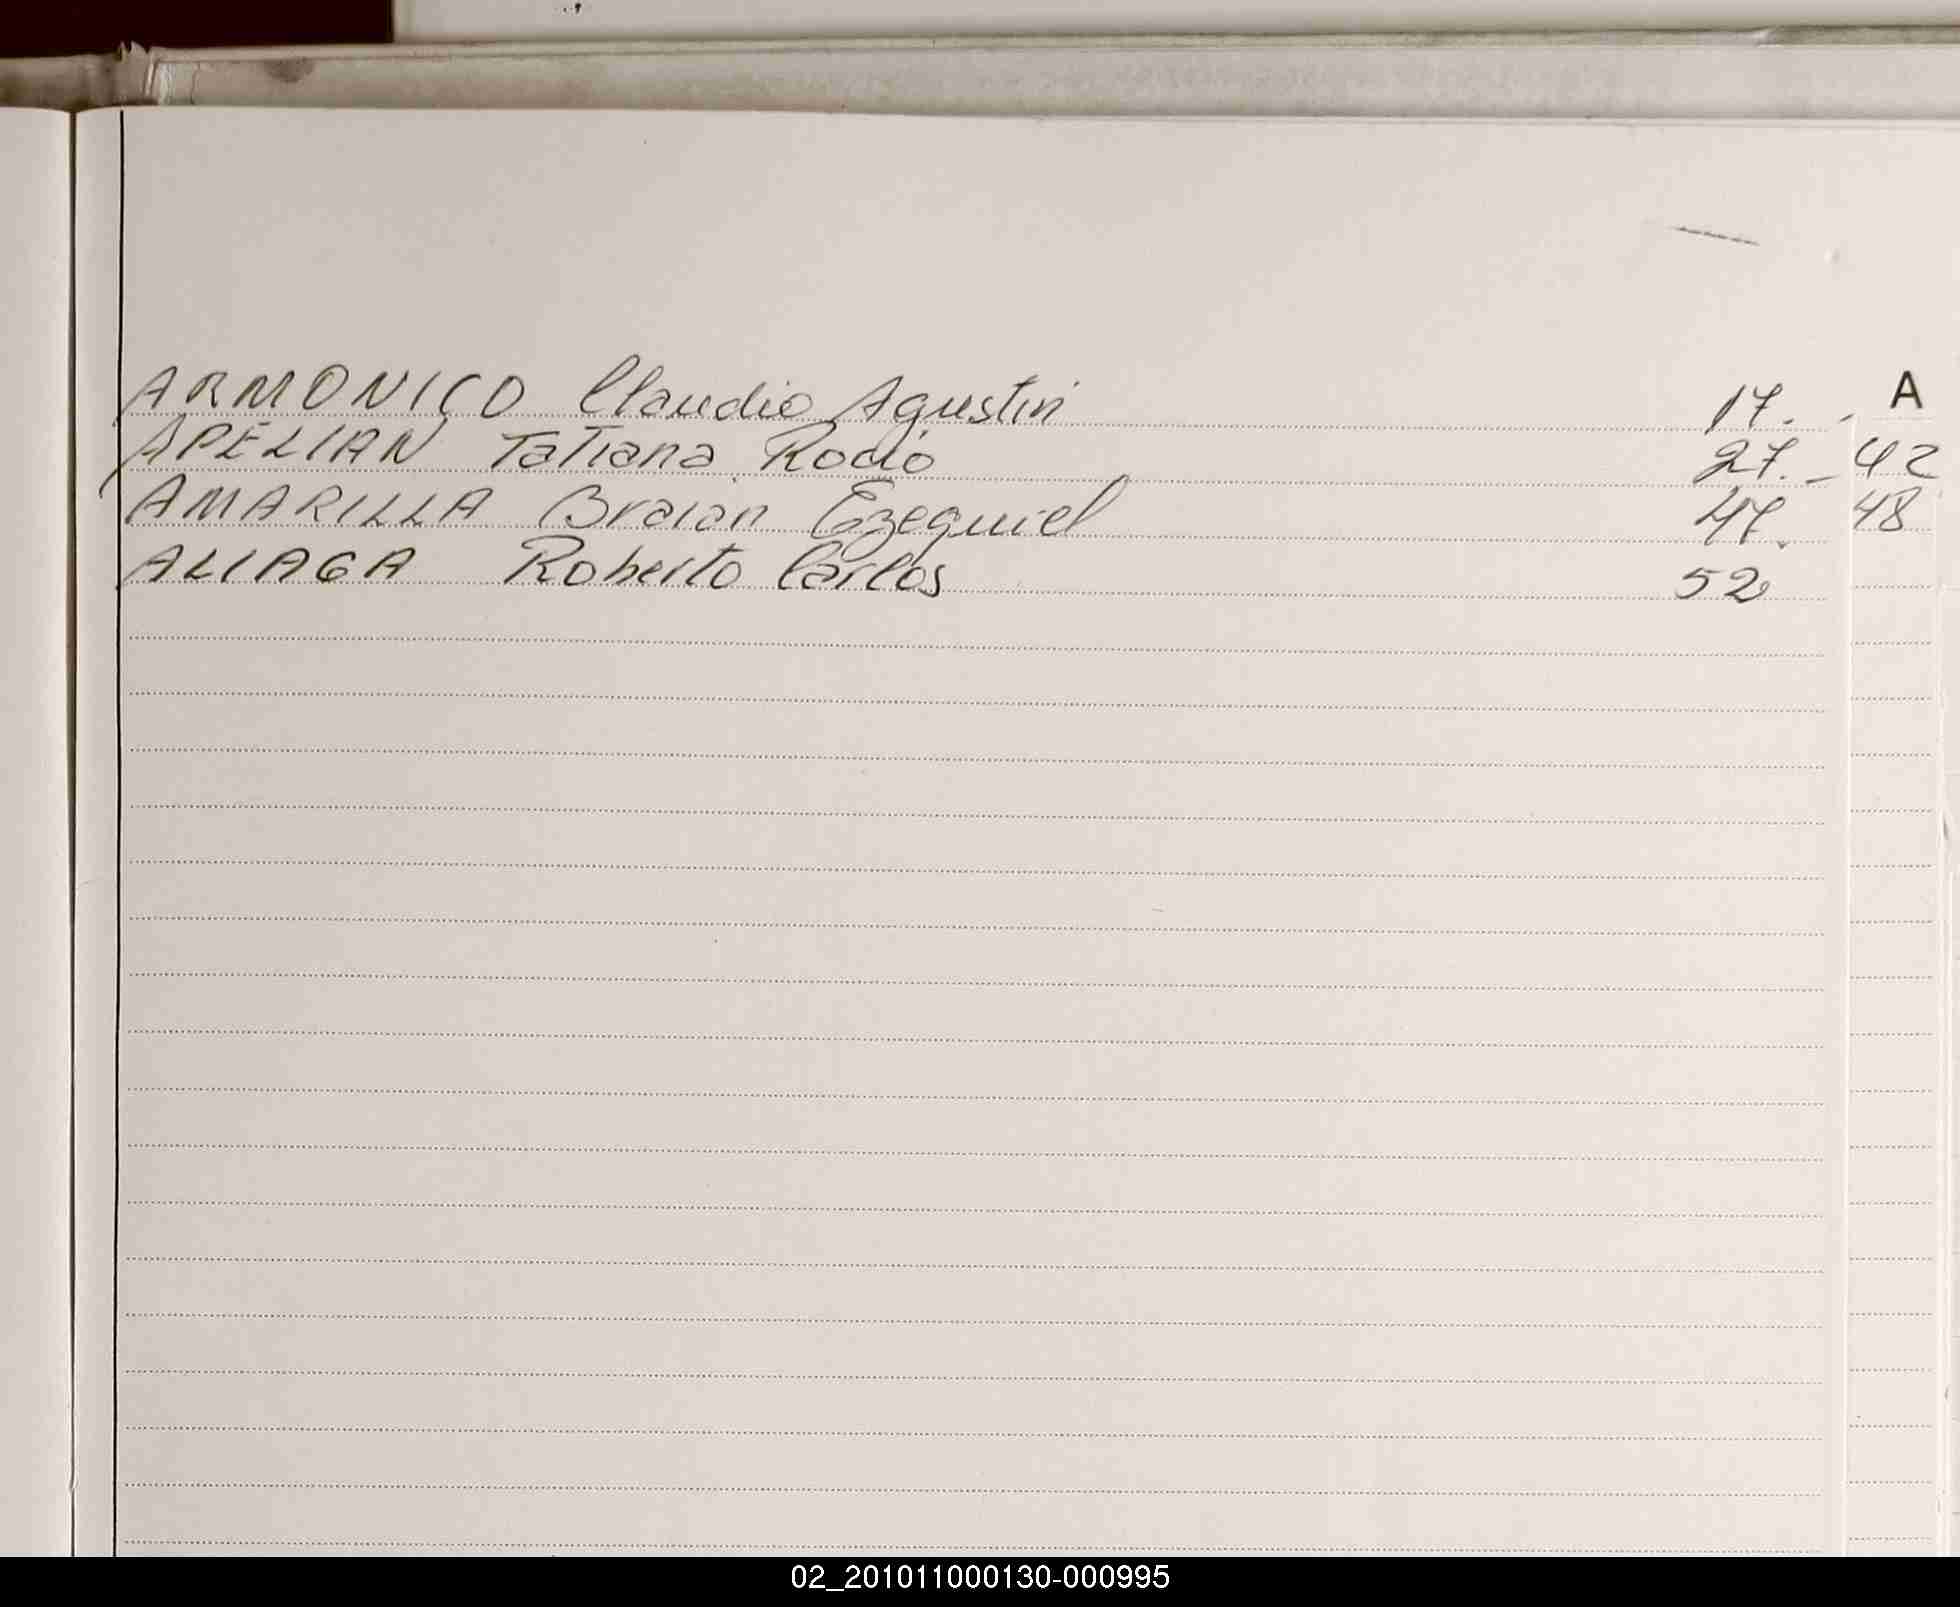 A
ARMONICO Claudio Agustin 17.
APELIAN Tatiana Rocío 27. – 42
AMARILLA Braian Ezequiel 47. 48
ALIAGA Roberto Carlos 52
02_201011000130-000995